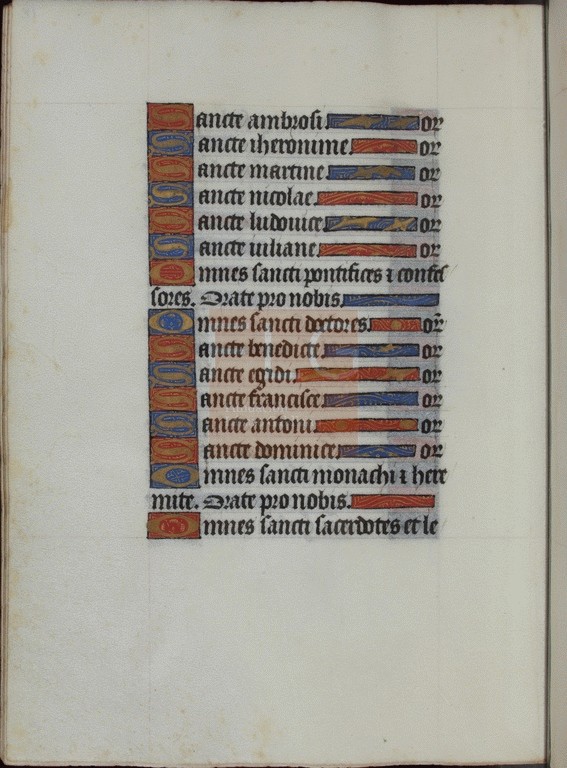 Sancte ambrosi or
Sancte iheronime or
Sancte martine or
Sancte nicolae or
Sancte ludouice or
Sancte iuliane or
Omnes sancti pontifices ⁊ confes
sores. Orate pro nobis.
Omnes sancti doctores. or
Sancte benedicte or
Sancte egidi. or
Sancte francisce or
Sancte antoni or
Sancte dominice or
Omnes sancti monachi ⁊ here
mite. Orate pro nobis.
Omnes sancti sacerdotes et le